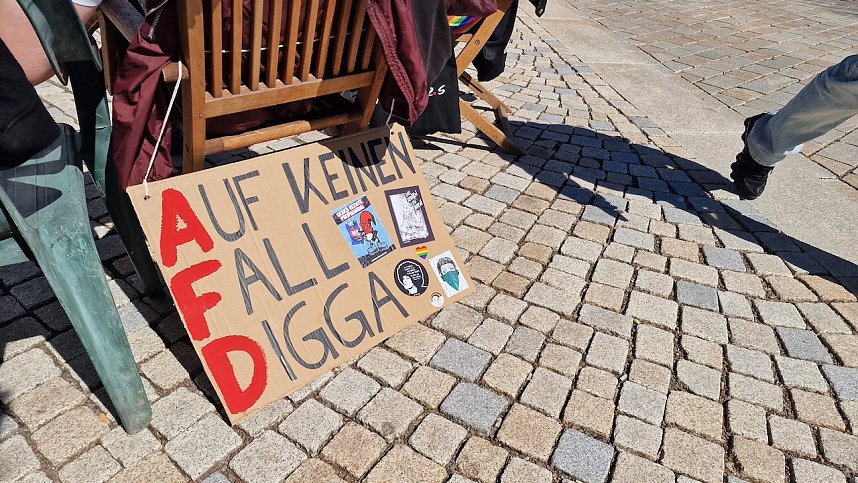 AUF KEINEN
FALL
DIGGA